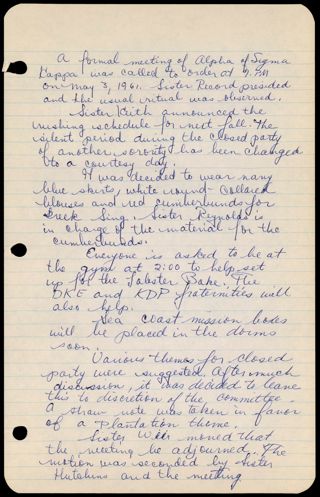 A formal meeting of Alpha of Sigma
Kappa was called to order at 7 PM
on May 3, 1961. Sister Record presided
and the usual ritual was observed.
Sister Keith announced the
rushing schedule for next fall. The
silent period during the closed party
of another sorority has been changed
to a courtesy day.
It was decided to wear navy
blue skirts, white round-collared
blouses and red cumberbunds for
Greek Sing. Sister Reynolds is
in charge of the material for the
cumberbunds.
Everyone is asked to be at
the gym at 2:00 to help set
up for the Lobster Bake. The
DKE and KDP fraternities will
also help.
Sea Coast mission boxes
will be placed in the dorms
soon.
Various themes for closed
party were suggested. After much
discussion, it was decided to leave
this to discretion of the committee.
A straw vote was taken in favor
of a Plantation theme.
Sister moved that
the meeting be adjourned. The
motion was seconded by Sister
Hutchins and the meeting